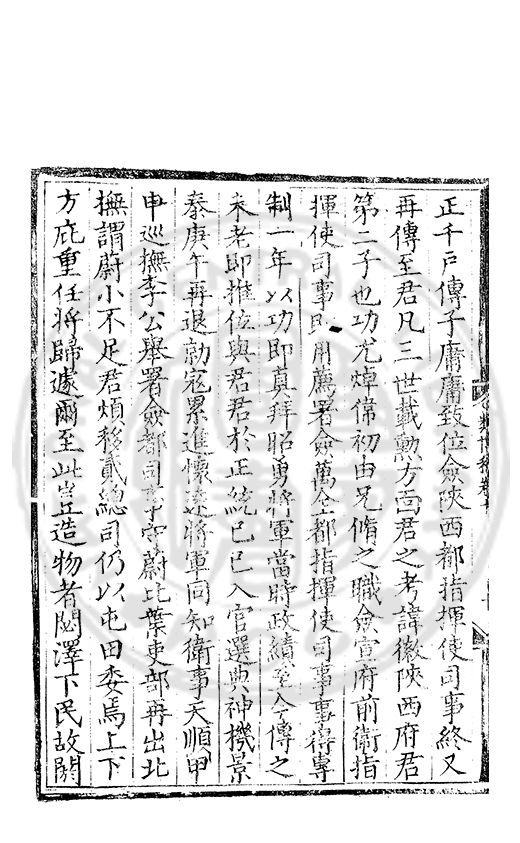 正千戶傳子庸庸致位僉陝西都指揮使司事終又
再傳至君凡三世載勲方面君之考諱徽陝西府君
第二子也功尤焯偉初由兄脩之職僉宣府前衛指
揮使司事用薦署僉萬全都指揮使司事事得專
制一年以功即真拜昭勇將軍當時政績至今傳之
未老即推位與君君於正統己巳入官選典神機景
泰庚午再退勍寇累進懷遠將軍同知衛事天順甲
申巡撫李公舉署僉都司事守蔚比葉吏部再出北
撫謂蔚小不足君煩移貳總司仍以屯田委焉上下
方庇重任將歸遽爾至此豈造物者閟澤下民故閼